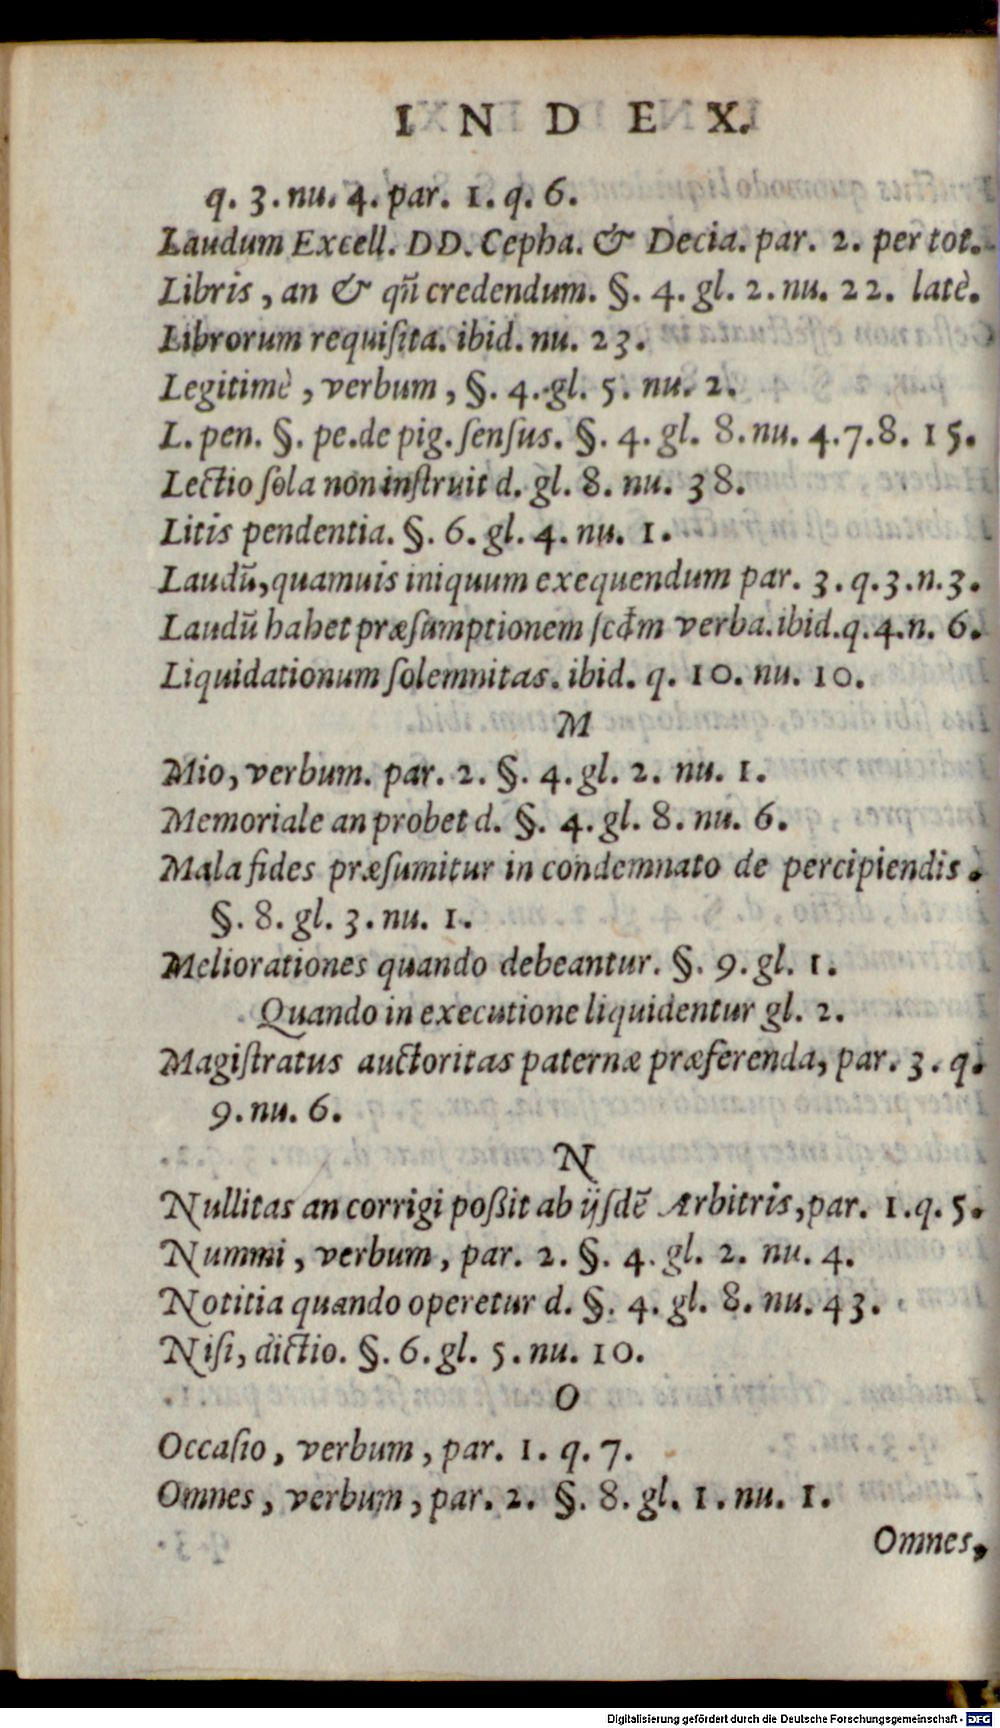 INDEX.
q. 3. nu. 4. par. 1. q. 6.
Laudum Excell. DD. Cepha. & Decia. par. 2. per tot.
Libris, an & qn̄ credendum. §. 4. gl. 2. nu. 22. latè.
Librorum requiſita. ibid. nu. 23.
Legitimè, verbum, §. 4. gl. 5. nu. 2.
L. pen. §. pe. de pig. ſenſus. §. 4. gl. 8. nu. 4. 7. 8. 15.
Lectio ſola non inſtruit d. gl. 8. nu. 38.
Litis pendentia. §. 6. gl. 4. nu. 1.
Laudū, quamuis iniquum exequendum par. 3. q. 3. n. 3.
Laudū habet præſumptionem ſcdm verba. ibid. q. 4. n. 6.
Liquidationum ſolemnitas. ibid. q. 10. nu. 10.
M
Mio, verbum. par. 2. §. 4. gl. 2. nu. 1.
Memoriale an probet d. §. 4. gl. 8. nu. 6.
Mala fides præſumitur in condemnato de percipiendis.
§. 8. gl. 3. nu. 1.
Meliorationes quando debeantur. §. 9. gl. 1.
Quando in executione liquidentur gl. 2.
Magiſtratus auctoritas paternæ præferenda, par. 3. q.
9. nu. 6.
N
Nullitas an corrigi poßit ab ijſdē Arbitris, par. 1. q. 5.
Nummi, verbum, par. 2. §. 4. gl. 2. nu. 4.
Notitia quando operetur d. §. 4. gl. 8. nu. 43.
Niſi, dictio. §. 6. gl. 5. nu. 10.
O
Occaſio, verbum, par. 1. q. 7.
Omnes, verbum, par. 2. §. 8. gl. 1. nu. 1.
Omnes,
Digitalisierung gefördert durch die Deutsche Forschungsgemeinschaft - DFG